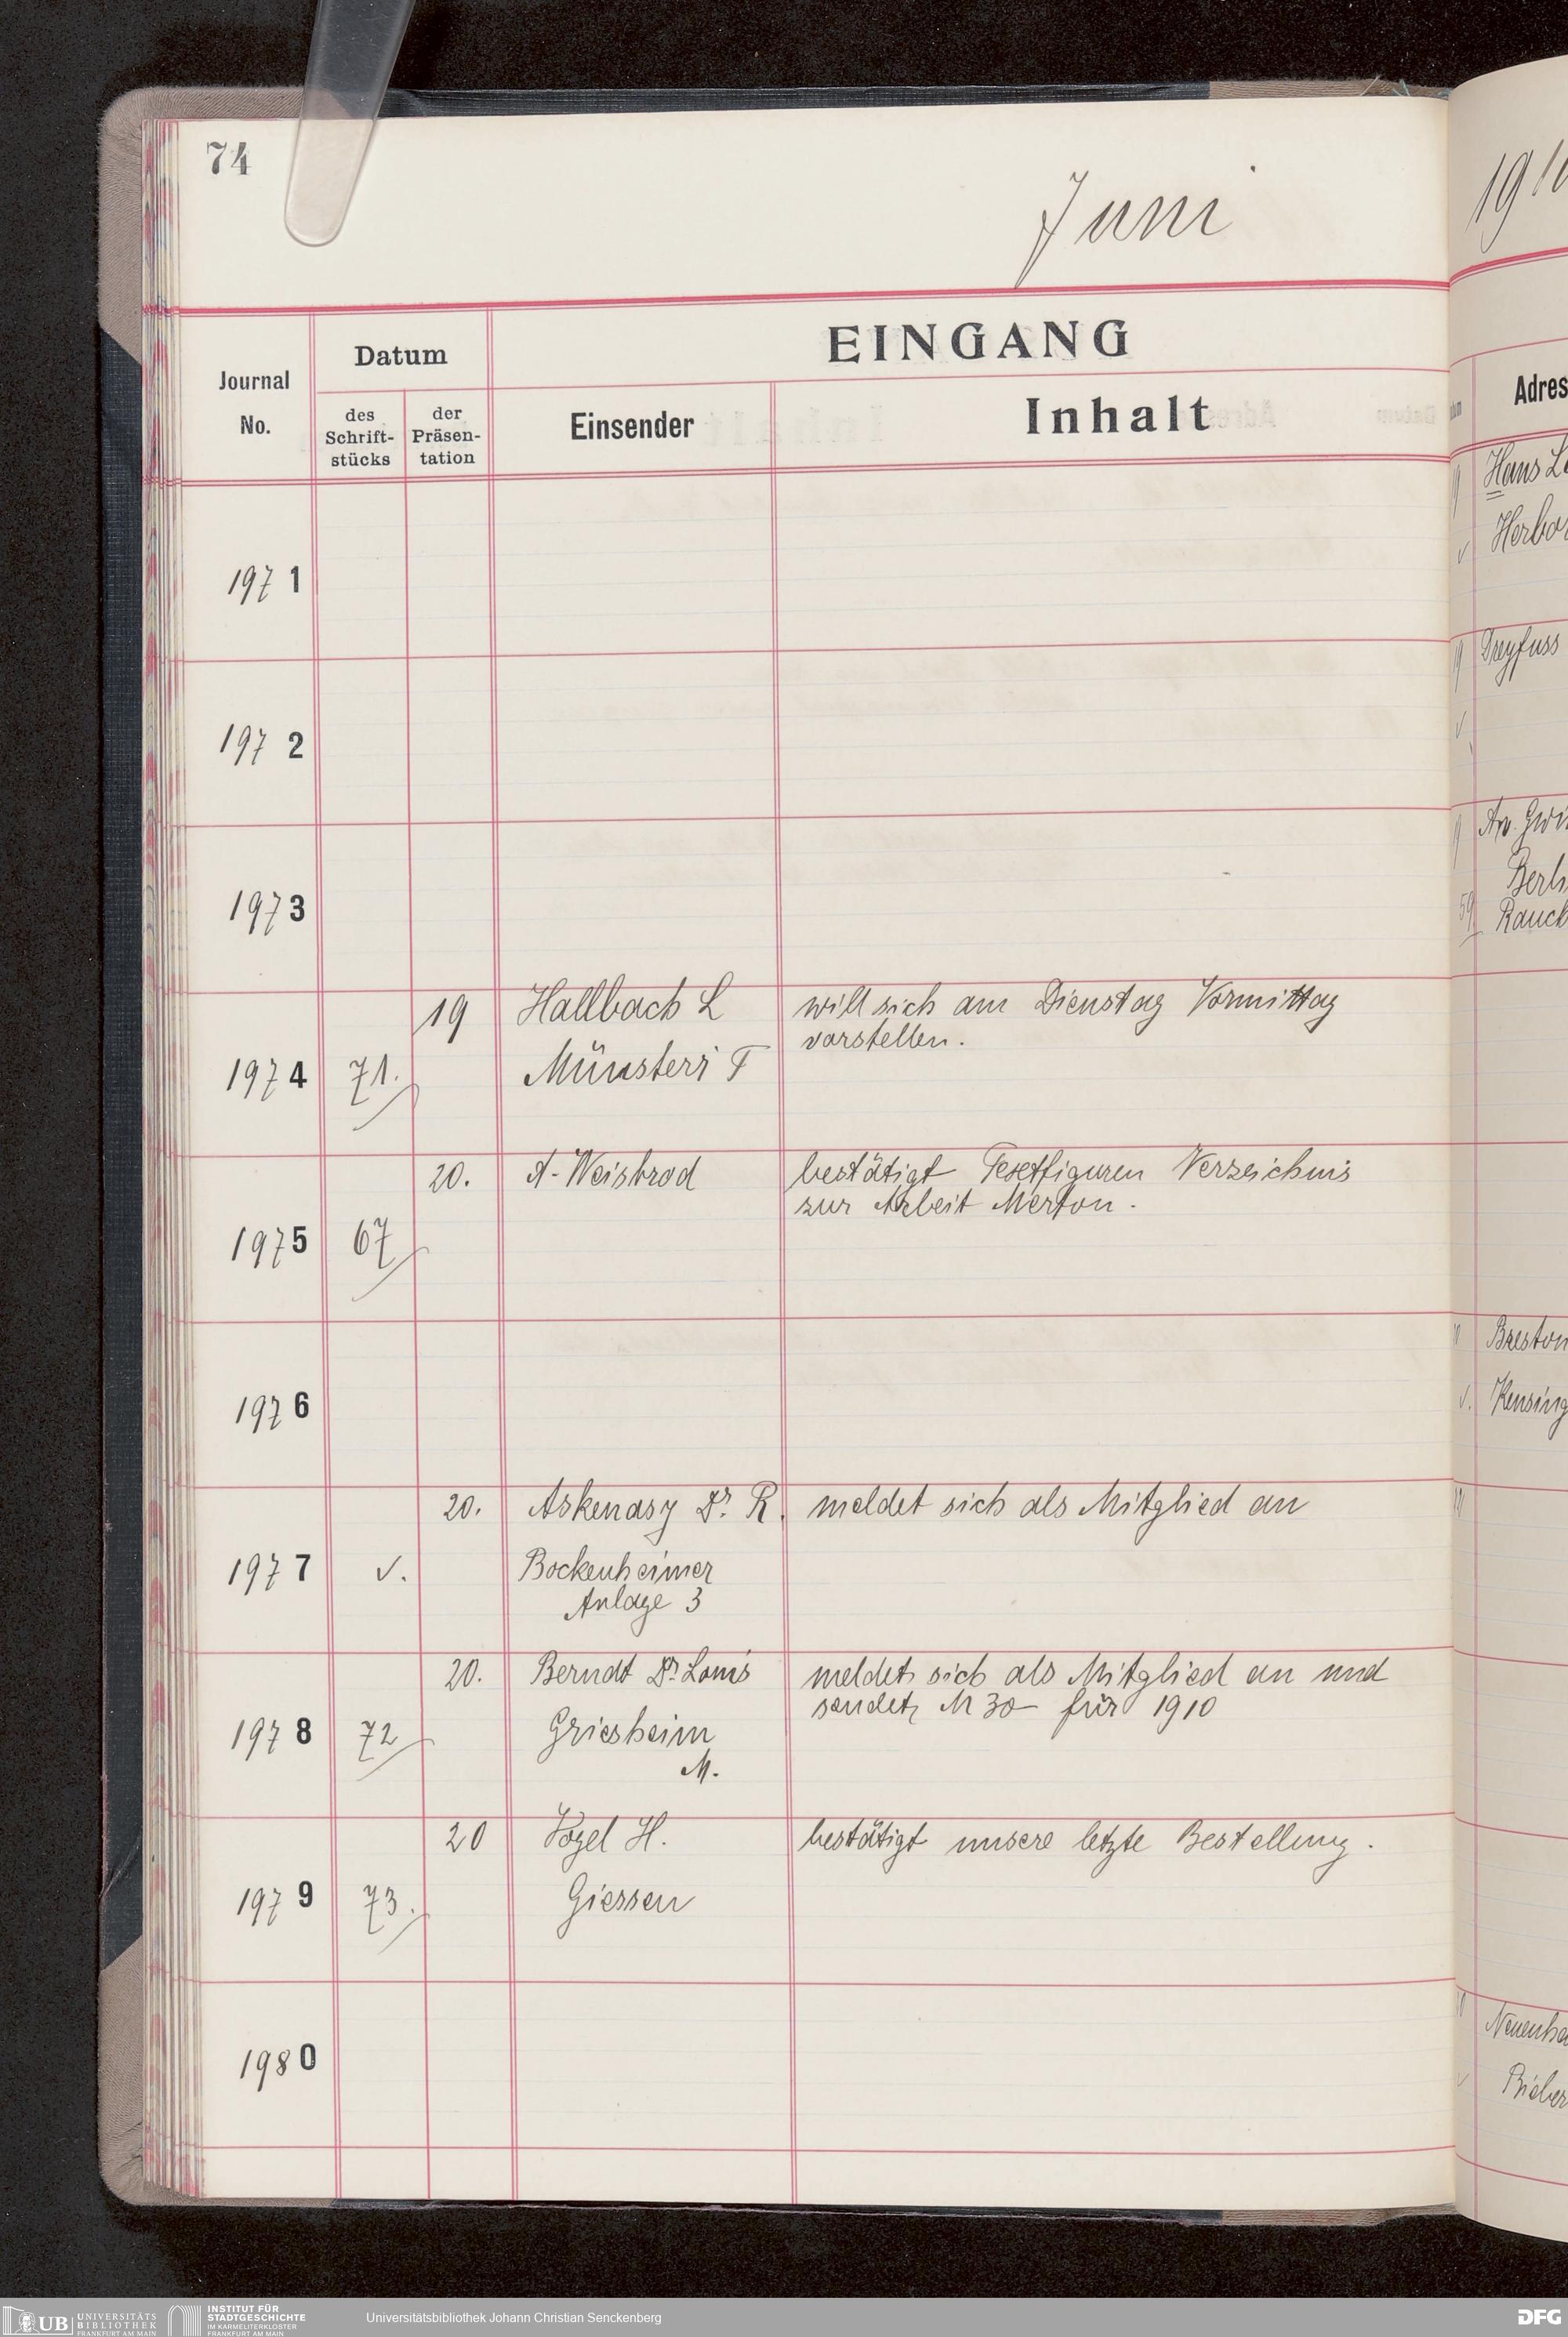 74
Juni
EINGANG
Journal
No.
Datum
des
Schrift-
stücks
der
Präsen-
tation
Einsender
Inhalt
1971
1972
1973
1974
71.
19
Hallbach L
Münsteri T
will sich am Dienstag Vormittag
vorstellen.
1975
67
20.
A. Weisbrod
bestätigt Textfiguren Verzeichnis
zur Arbeit Merton.
1976
1977
✓.
20.
Askenasy Dr. R.
Bockenheimer
Anlage 3
meldet sich als Mitglied an
1978
72
20.
Berndt Dr. Louis
Griesheim
M.
meldet sich als Mitglied an und
sendet M 30– für 1910
1979
73.
20
Vogel H.
Giessen
bestätigt unsere letzte Bestellung.
1980
Adres
Hans Le
Herbor
Dreyfuss
Berli
Rauch
59
Kensing
Bieber
UB
UNIVERSITÄTS
BIBLIOTHEK
FRANKFURT AM MAIN
INSTITUT FÜR
STADTGESCHICHTE
IM KARMELITERKLOSTER
FRANKFURT AM MAIN
Universitätsbibliothek Johann Christian Senckenberg
DFG